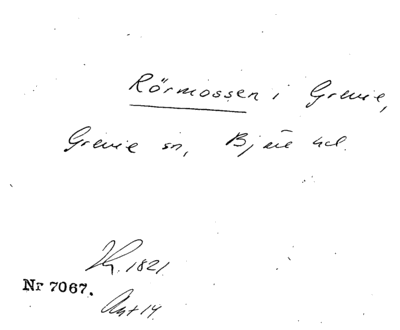 Rörmossen i Grevie,
Grevie sn, Bjäre hd.
1821
Nr 7067.